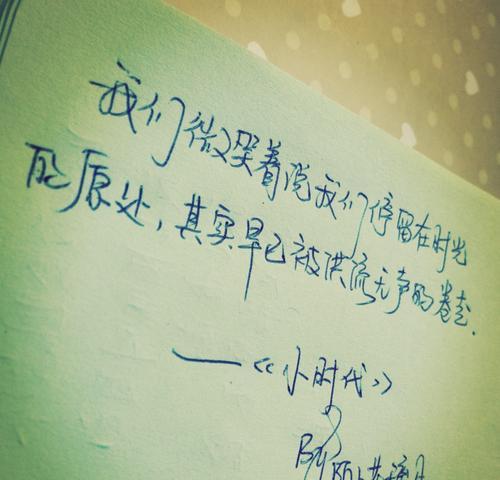 我们微笑着说我们停留在时光
的原处，其实早已被洪流无声的卷走.
——《小时代》
By陌上